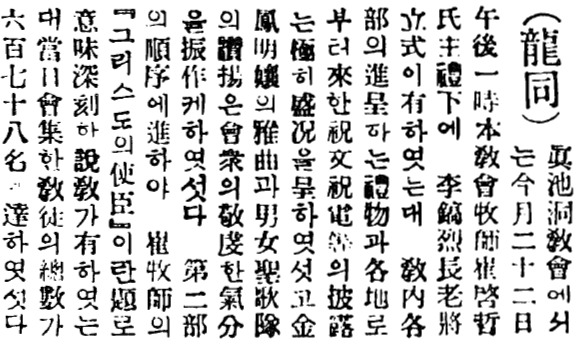 (龍同) 眞池洞敎會에서
는今月二十二日
午後一時本敎會牧師崔啓哲
氏主禮下에 李鎬烈長老將
立式이有하엿는대 敎內各
部의進呈하는禮物과各地로
부터來한祝文祝電 의披露
는極히盛况을呈하엿섯고金
鳳明孃의雅曲과男女聖歌隊
의讚揚은會衆의敬虔한氣分
을振作케하엿섯다 第二部
의順序에進하야 崔牧師의
『그리스도의使臣』이란題로
意味深刻한說敎가有하엿는
대當日會集한敎徒의總數가
六百七十八名 達하엿섯다